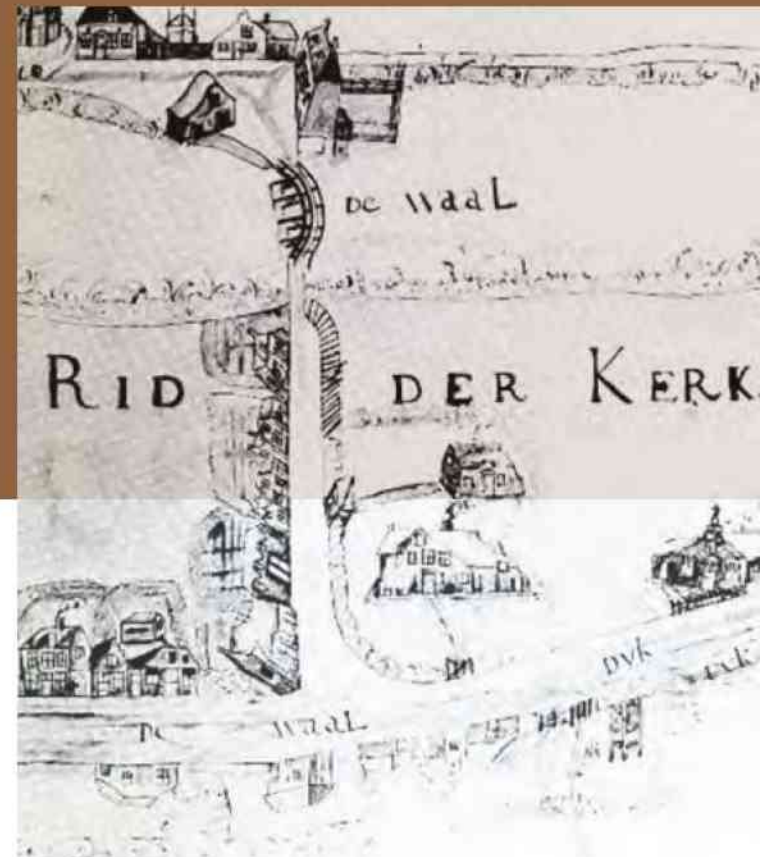 De WaaL
RID DER KERK
DYK
De WaaL